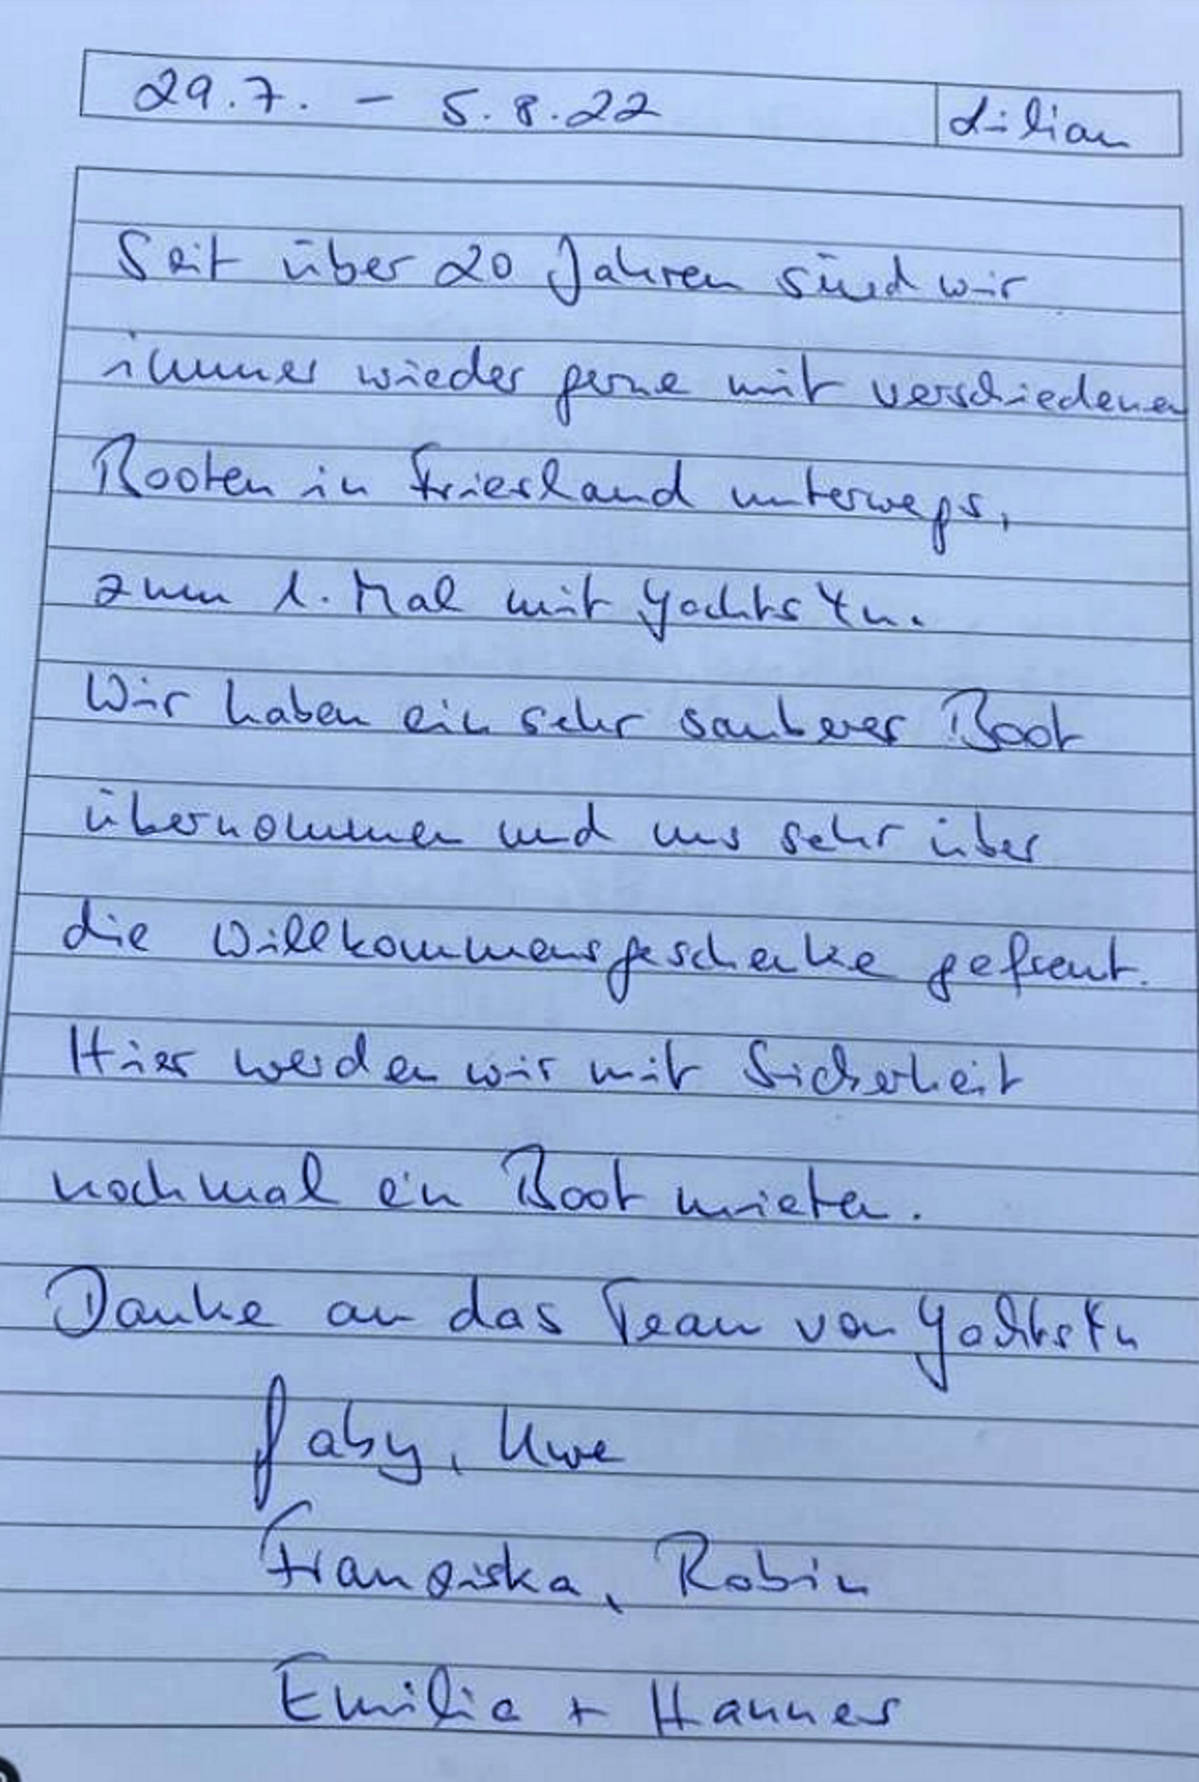 29.7. - 5.8.22 Lilian
Seit über 20 Jahren sind wir
immer wieder gerne mit verschiedenen
Booten in Friesland unterwegs,
zum 1. Mal mit Yachts4u.
Wir haben ein sehr sauberes Boot
übernommen und uns sehr über
die Willkommensgeschenke gefreut.
Hier werden wir mit Sicherheit
nochmal ein Boot mieten.
Danke an das Team von Yachts4u
Gaby, Uwe
Franziska, Robin
Emilia + Hannes